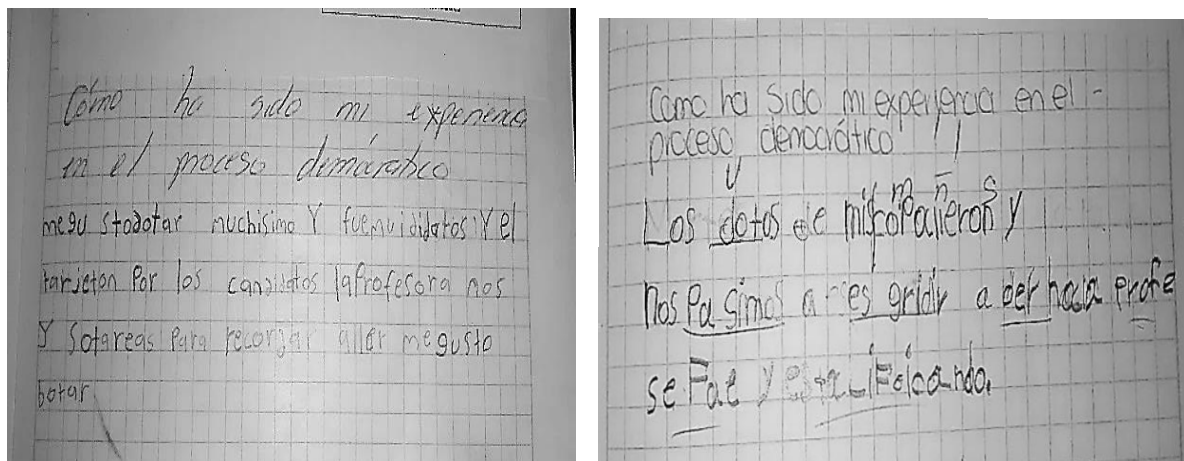 Cómo ha sido mi experiencia
en el proceso demócratico
megu stodotar muchisimo Y fuemuididatos Y el
tarjeton Por los candidatos laProfesora nos
Y Sotareas Para recorjar aller megusto
botar
Como ha sido mi experiencia en el -
proceso democrático
Los dotos de mis compañeros y
nos Pa simos a res gridir a ber hacia profe
se Fae y esta lifficando.